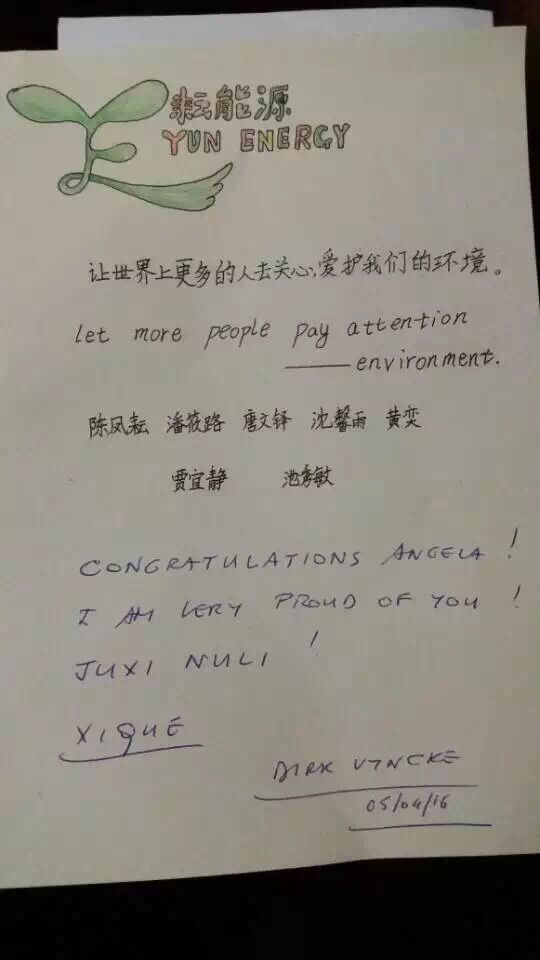 耘能源
YUN ENERGY
让世界上更多的人去关心,爱护我们的环境。
let more people pay attention
——environment.
陈凤耘 潘筱路 唐文铎 沈馨雨 黄奕
贾宜静 池秀敏
CONGRATULATIONS ANGELA!
I AM VERY PROUD OF YOU!
JUXI NULI!
XIQUE
DIRK VYNCKE
05/04/16